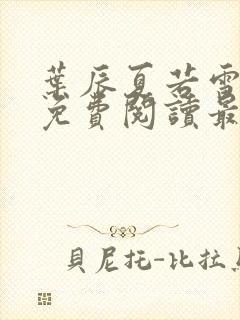 葉辰夏若雪
免費閱讀最
貝尼托-比拉